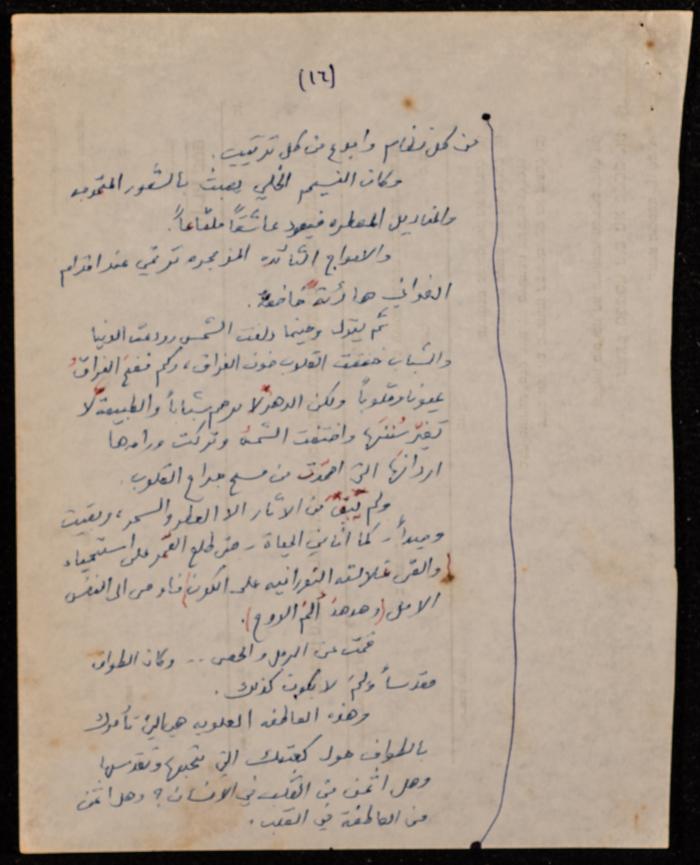 (١٦)
من كل نظام وابدع من كل ترتيب.
وكان النسيم الخلي يعبث بالشعور المتموجه
والمناديل المعطره فيعود عاشقاً ملتاعاً.
والامواج الثائره المزمجره ترتمي عند اقدام
الغواني هادئة خاضعة.
ثم يقول وحينما دلفت الشمس وودعت الدنيا
والشباب خفقت القلوب خوف الفراق، وكم فجع الفراق
عيونا وقلوباً ولكن الدهر لا يرحم شباباً والطبيعة لا
تغير سنتها واختفت الشمس وتركت وراءها
اردانها التي احمرّت من مسح جراح القلوب.
ولم يبق من الآثار الا العطر والسحر، وبقيت
وحيداً - كما أنا في الحياة - حتى طلع القمر على استحياء
والقى غلالته النورانيه على الكون (فاوحى الى النفس
الامل (وهدهد ألم الروح).
قمت عن الرمل والحصى .. وكان الطواف
مقدساً ولم لا يكون كذلك.
وهذه العاطفه العلويه هي التي تأمرك
بالطواف حول كعبتك التي تحبها وتقدسها
وهل اثمن من القلب في الانسان؟ وهل اثمن
من العاطفة في القلب.